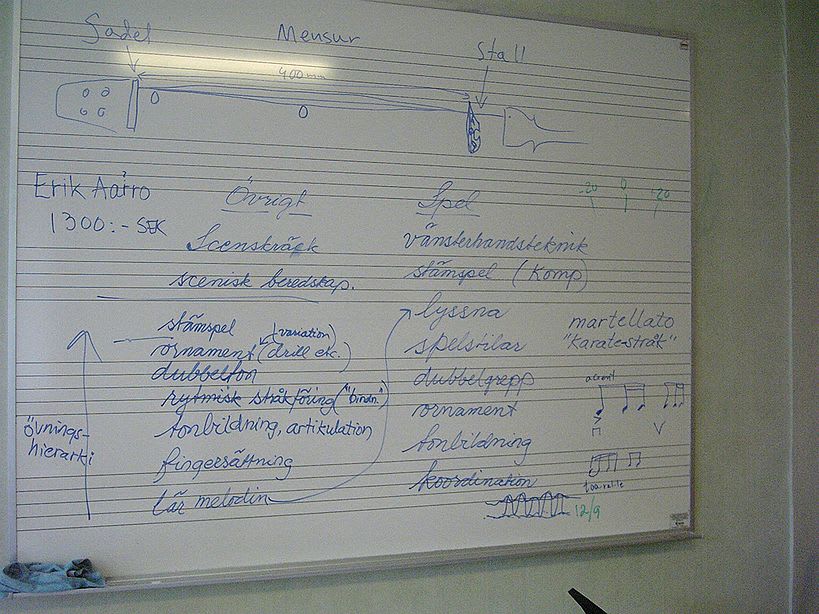 Sadel Mensur Stall
400 mm
Erik Aairo
1300:- SEK
Övrigt
Scenskräck
scenisk beredskap.
stämspel
(variation)
ornament (drill etc.)
dubbelton
rytmisk stråkföring ("bindn.")
tonbildning, artikulation
fingersättning
lär melodin
övnings-
hierarki
Spel
vänsterhandsteknik
stämspel (Komp)
lyssna
spelstilar
dubbelgrepp
ornament
tonbildning
koordination
-20 0 +20
martellato
"Karate-stråk"
accent
12/9